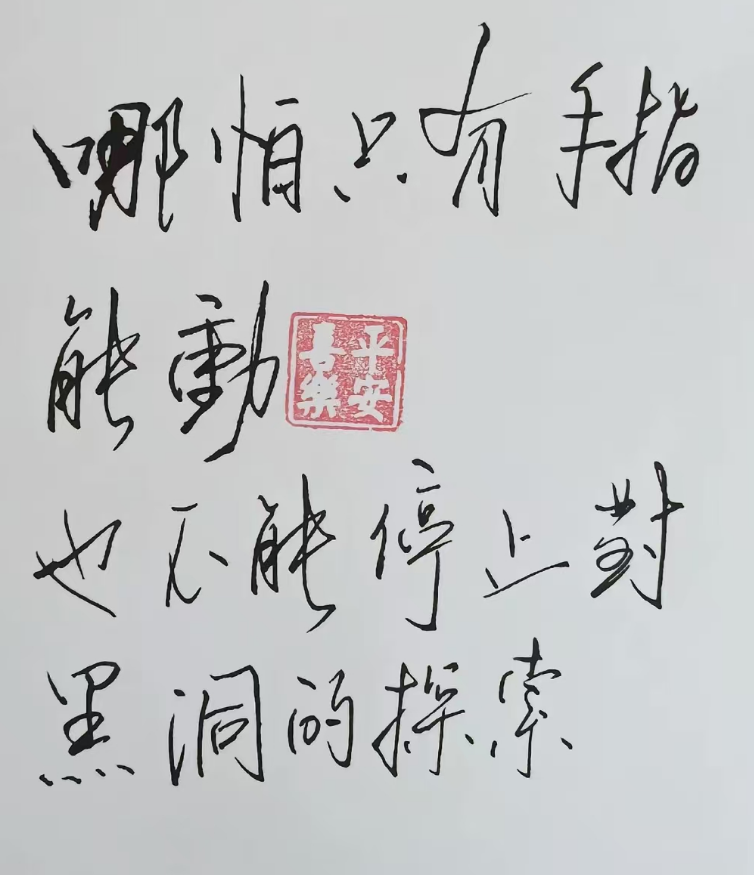 哪怕只有手指
能動
平安喜樂
也不能停止對
黑洞的探索